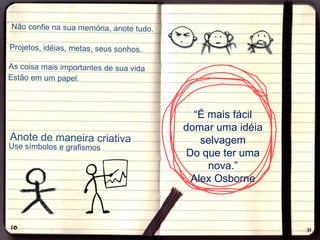 Não confie na sua memória, anote tudo.
Projetos, idéias, metas, seus sonhos.
As coisa mais importantes de sua vida
Estão em um papel.
Anote de maneira criativa
Use símbolos e grafismos
10
“É mais fácil
domar uma idéia
selvagem
Do que ter uma
nova.”
Alex Osborne
11